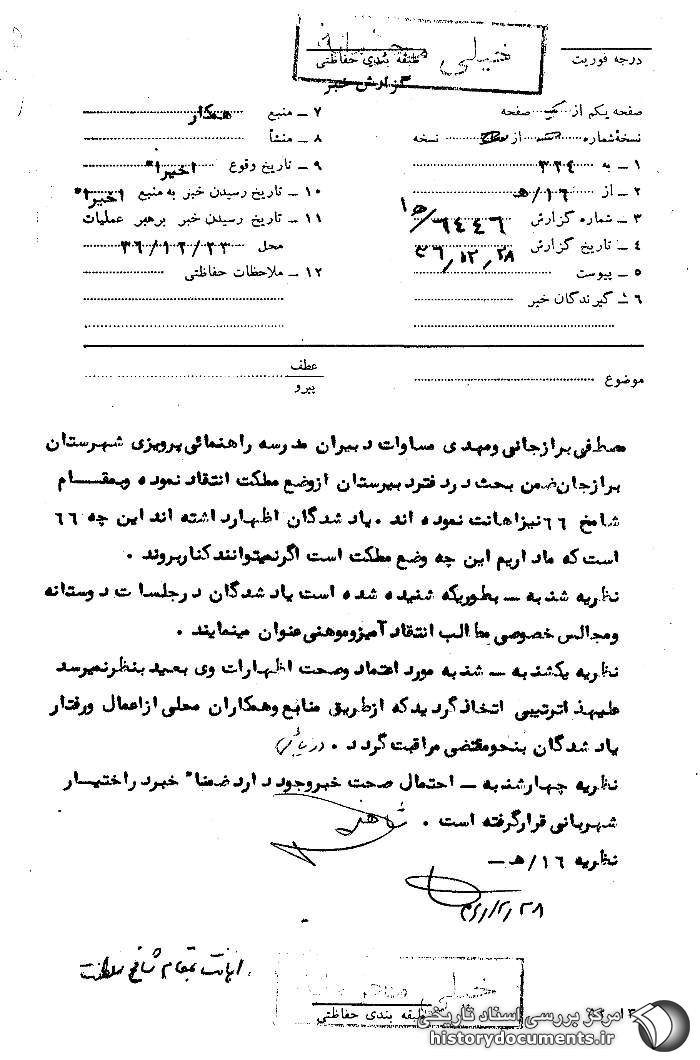 خیلی محرمانه
طبقه بندی حفاظتی
درجه فوریت
گزارش خبر
صفحه یکم از یک صفحه
نسخه شماره از نسخه
۱ ــ به ۳۲٤
۲ ــ از ۱٦/هـ
۳ ــ شماره گزارش ٦٤٤٦/هـ۱
٤ ــ تاریخ گزارش ۳٦/۱۲/۲۸
۵ ــ پیوست
٦ ــ گیرندگان خبر
۷ ــ منبع همکار
۸ ــ منشأ
۹ ــ تاریخ وقوع اخیراً
۱۰ ــ تاریخ رسیدن خبر به منبع اخیراً
۱۱ ــ تاریخ رسیدن خبر برهبر عملیات
محل ۳٦/۱۲/۲۳
۱۲ ــ ملاحظات حفاظتی
موضوع
عطف
پیرو
مصطفی برازجانی ومهدی مساوات دبیران مدرسه راهنمائی پرویزی شهرستان
برازجان ضمن بحث در دفتر دبیرستان ازوضع مملکت انتقاد نموده وبمقام
شامخ ٦٦ نیزاهانت نموده اند ۰ یاد شدگان اظهارداشته اند این چه ٦٦
است که ما داریم این چه وضع مملکت است اگرنمیتوانند کناربروند ۰
نظریه شنبه ــ بطوریکه شنیده شده است یاد شدگان درجلسات دوستانه
ومجالس خصوصی مطالب انتقاد آمیزوموهنی عنوان مینمایند ۰
نظریه یکشنبه ــ شنبه مورد اعتماد وصحت اظهارات وی بعید بنظرنمیرسد
علیهذا ترتیبی اتخاذ گردید که ازطریق منابع وهمکاران محلی ازاعمال ورفتار
یاد شدگان بنحومقتضی مراقبت گردد ۰
نظریه چهارشنبه ــ احتمال صحت خبروجود دارد ضمناً خبردراختیار
شهربانی قرارگرفته است ۰
نظریه ۱٦/هـ ــ
اهانت بمقام شامخ سلطنت
خیلی محرمانه
طبقه بندی حفاظتی
مرکز بررسی اسناد تاریخی
historydocuments.ir